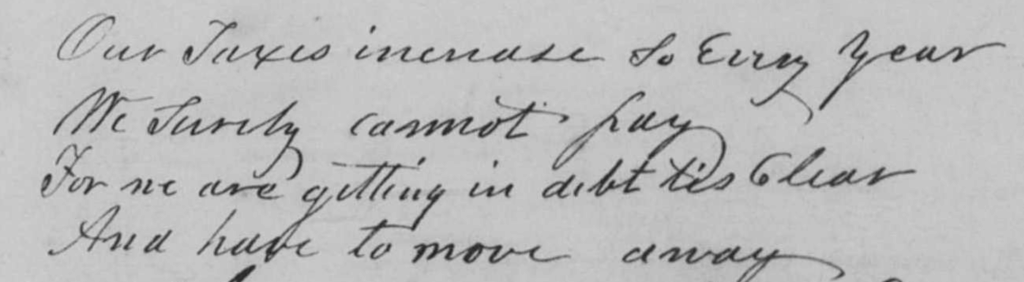 Our Taxes increase So Evry Year
We Surely cannot pay
For we are getting in debt tis Clear
And have to move away